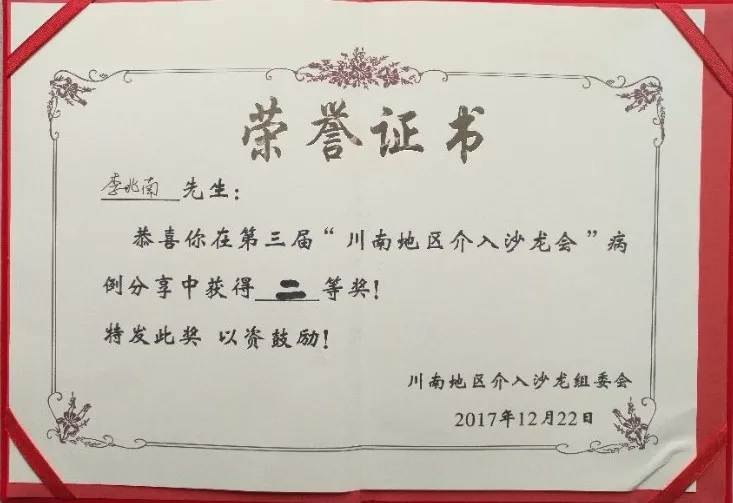 荣誉证书
李兆南 先生：
恭喜你在第三届“川南地区介入沙龙会”病
例分享中获得 二 等奖！
特发此奖 以资鼓励！
川南地区介入沙龙组委会
2017年12月22日